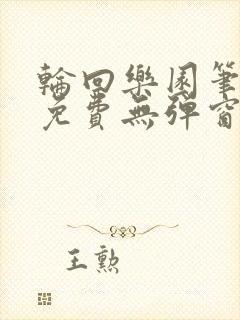 輪回樂園筆
免費無彈窗
王勲